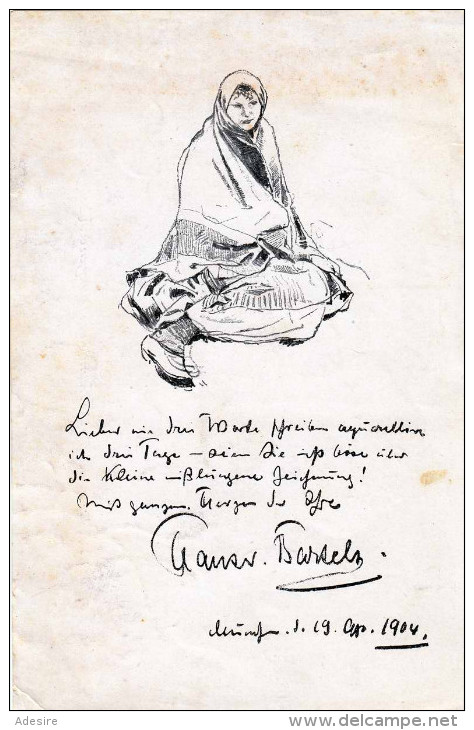 Lieber als drei Worte schreiben aquarelliere
ich drei Tage – seien Sie nicht böse über
die kleine mißlungene Zeichnung!
Mit ganzem Herzen der Ihre
Hans v. Bartels.
München. d. 19. Ap. 1904.
Adesire
www.delcampe.net